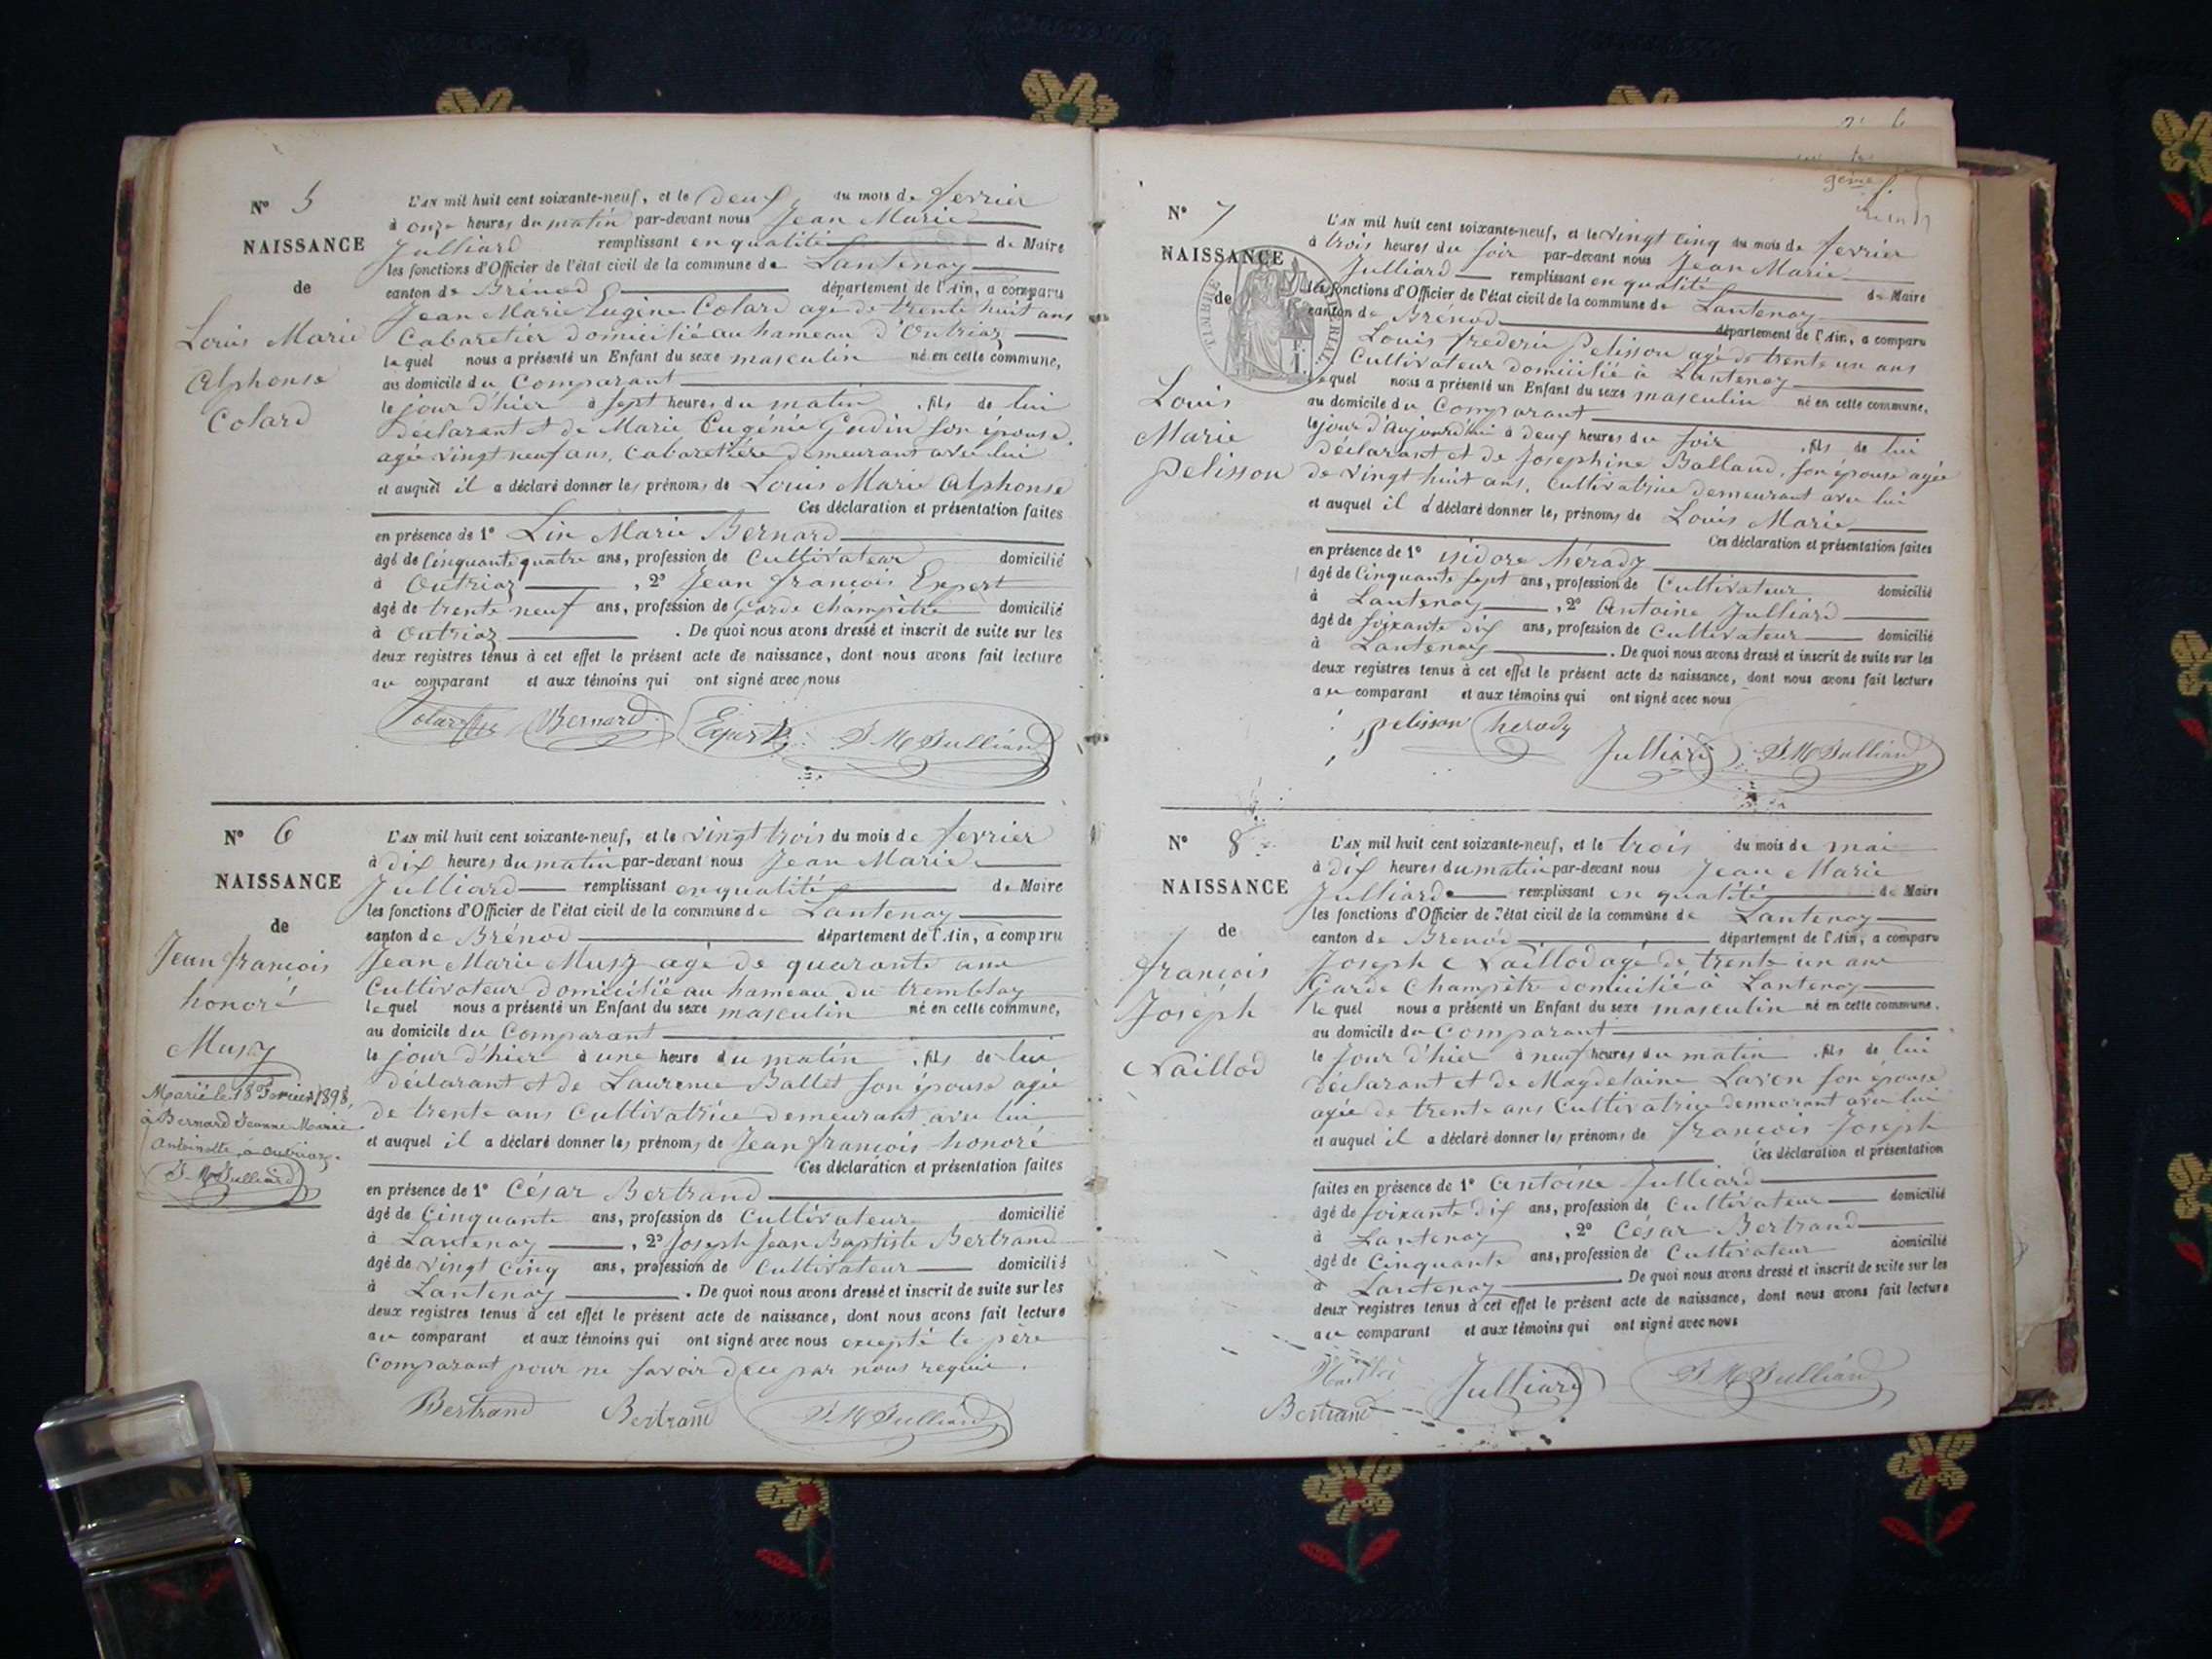 N° 5
NAISSANCE
de
Louis Marie
Alphonse
Colard
L'AN mil huit cent soixante-neuf, et le deux du mois de fevrier
à onze heures du matin par-devant nous Jean Marie
Julliard remplissant en qualité de Maire
les fonctions d'Officier de l'état civil de la commune de Lantenay
canton de Brénod département de l'Ain, a comparu
Jean Marie Eugène Colard agé de trente huit ans
Cabaretier domicilié au hameau d'Outriaz
le quel nous a présenté un Enfant du sexe masculin né en cette commune,
au domicile du Comparant
le jour d'hier à sept heures du matin , fils de lui
déclarant et de Marie Eugénie Gudin son épouse
agée vingt neuf ans, Cabaretière demeurant avec lui
et auquel il a déclaré donner les prénoms de Louis Marie Alphonse
Ces déclaration et présentation faites
en présence de 1° Lin Marie Bernard
âgé de Cinquante quatre ans, profession de Cultivateur domicilié
à Outriaz , 2° Jean françois Expert
âgé de trente neuf ans, profession de Garde Champêtre domicilié
à Outriaz . De quoi nous avons dressé et inscrit de suite sur les
deux registres tenus à cet effet le présent acte de naissance, dont nous avons fait lecture
au comparant et aux témoins qui ont signé avec nous
Bernard Expert J M Julliard
N° 6
NAISSANCE
de
Jean françois
honoré
Musy
Marié le 18 Fevrier 1898,
à Bernard Jeanne Marie
Antoinette, à Outriaz.
J. M Julliard
L'AN mil huit cent soixante-neuf, et le vingt trois du mois de fevrier
à dix heures du matin par-devant nous Jean Marie
Julliard remplissant en qualité de Maire
les fonctions d'Officier de l'état civil de la commune de Lantenay
canton de Brénod département de l'Ain, a comparu
Jean Marie Musy agé de quarante ans
Cultivateur domicilié au hameau du tremblay
le quel nous a présenté un Enfant du sexe masculin né en cette commune,
au domicile du Comparant
le jour d'hier à une heure du matin , fils de lui
déclarant et de Laurence Ballet son épouse agée
de trente ans Cultivatrice demeurant avec lui
et auquel il a déclaré donner les prénoms de Jean françois honoré
Ces déclaration et présentation faites
en présence de 1° César Bertrand
âgé de Cinquante ans, profession de Cultivateur domicilié
à Lantenay , 2° Joseph Jean Baptiste Bertrand
âgé de vingt cinq ans, profession de Cultivateur domicilié
à Lantenay . De quoi nous avons dressé et inscrit de suite sur les
deux registres tenus à cet effet le présent acte de naissance, dont nous avons fait lecture
au comparant et aux témoins qui ont signé avec nous excepté le père
Comparant pour ne savoir de ce par nous requis.
Bertrand Bertrand J M Julliard
N° 7
NAISSANCE
de
TIMBRE IMPERIAL
Louis
Marie
pelisson
L'AN mil huit cent soixante-neuf, et le vingt cinq du mois de fevrier
à trois heures du soir par-devant nous Jean Marie
Julliard remplissant en qualité de Maire
les fonctions d'Officier de l'état civil de la commune de Lantenay
canton de Brénod département de l'Ain, a comparu
Louis frederic pelisson agé de trente un ans
Cultivateur domicilié à Lantenay
le quel nous a présenté un Enfant du sexe masculin né en cette commune,
au domicile du Comparant
le jour d'Aujourd'hui à deux heures du soir , fils de lui
déclarant et de Josephine Balland, son épouse agée
de vingt huit ans, Cultivatrice demeurant avec lui
et auquel il a déclaré donner les prénoms de Louis Marie
Ces déclaration et présentation faites
en présence de 1° isidore hérady
âgé de Cinquante sept ans, profession de Cultivateur domicilié
à Lantenay , 2° Antoine Julliard
âgé de soixante dix ans, profession de Cultivateur domicilié
à Lantenay . De quoi nous avons dressé et inscrit de suite sur les
deux registres tenus à cet effet le présent acte de naissance, dont nous avons fait lecture
au comparant et aux témoins qui ont signé avec nous
pelisson herody Julliard J. M Julliard
N° 8
NAISSANCE
de
françois
Joseph
Naillod
L'AN mil huit cent soixante-neuf, et le trois du mois de mai
à dix heures du matin par-devant nous Jean Marie
Julliard remplissant en qualité de Maire
les fonctions d'Officier de l'état civil de la commune de Lantenay
canton de Brenod département de l'Ain, a comparu
Joseph Naillod agé de trente un ans
Garde Champêtre domicilié à Lantenay
le quel nous a présenté un Enfant du sexe masculin né en cette commune.
au domicile du Comparant
le jour d'hier à neuf heures du matin , fils de lui
déclarant et de Magdelaine Laren son épouse
agée de trente ans Cultivatrice demeurant avec lui
et auquel il a déclaré donner les prénoms de françois Joseph
Ces déclaration et présentation
faites en présence de 1° Antoine Julliard
âgé de soixante dix ans, profession de Cultivateur domicilié
à Lantenay , 2° César Bertrand
âgé de Cinquante ans, profession de Cultivateur domicilié
à Lantenay . De quoi nous avons dressé et inscrit de suite sur les
deux registres tenus à cet effet le présent acte de naissance, dont nous avons fait lecture
au comparant et aux témoins qui ont signé avec nous
Julliard J M Julliard
Bertrand